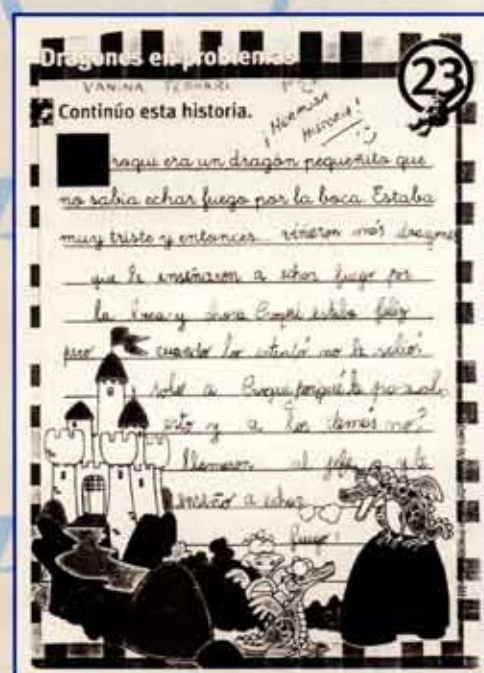 Dragones en problemas
23
VANINA
Continúo esta historia.
¡HERMOSA
HISTORIA!
roqui era un dragón pequeñito que
no sabía echar fuego por la boca. Estaba
muy triste y entonces vineron más dragones
que le enseñaron a echar fuego por
la boca y ahora Croqui estaba feliz
pero cuando lo intentó no le salió
a Croqui porqué le pasaba
esto y a los demás no?
llamaron al jefe y le
enseño a echar
fuego!